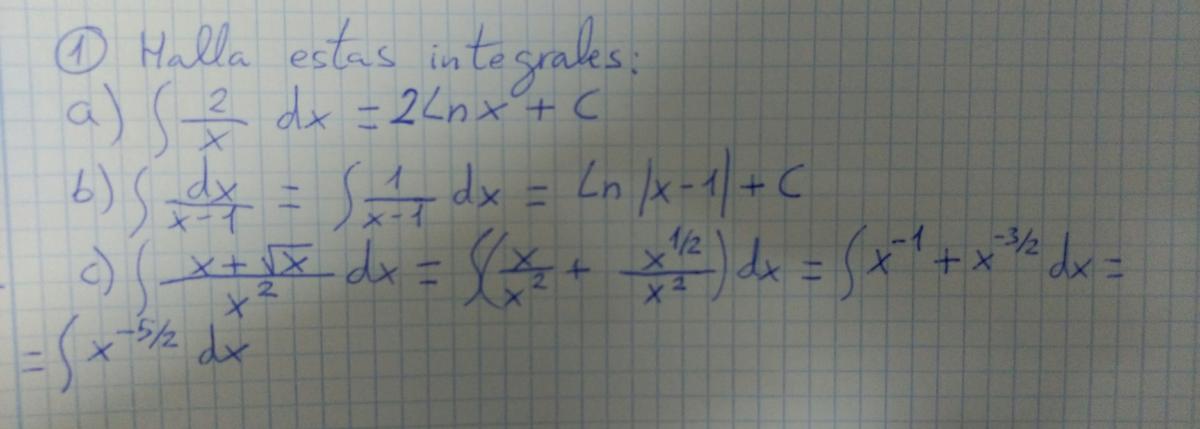 ① Halla estas integrales:
a) ∫ 2/x dx = 2Ln x + C
b) ∫ dx/(x-1) = ∫ 1/(x-1) dx = Ln |x-1| + C
c) ∫ (x+√x)/x² dx = ∫(x/x² + x^(1/2)/x²) dx = ∫ x^(-1) + x^(-3/2) dx =
= ∫ x^(-5/2) dx